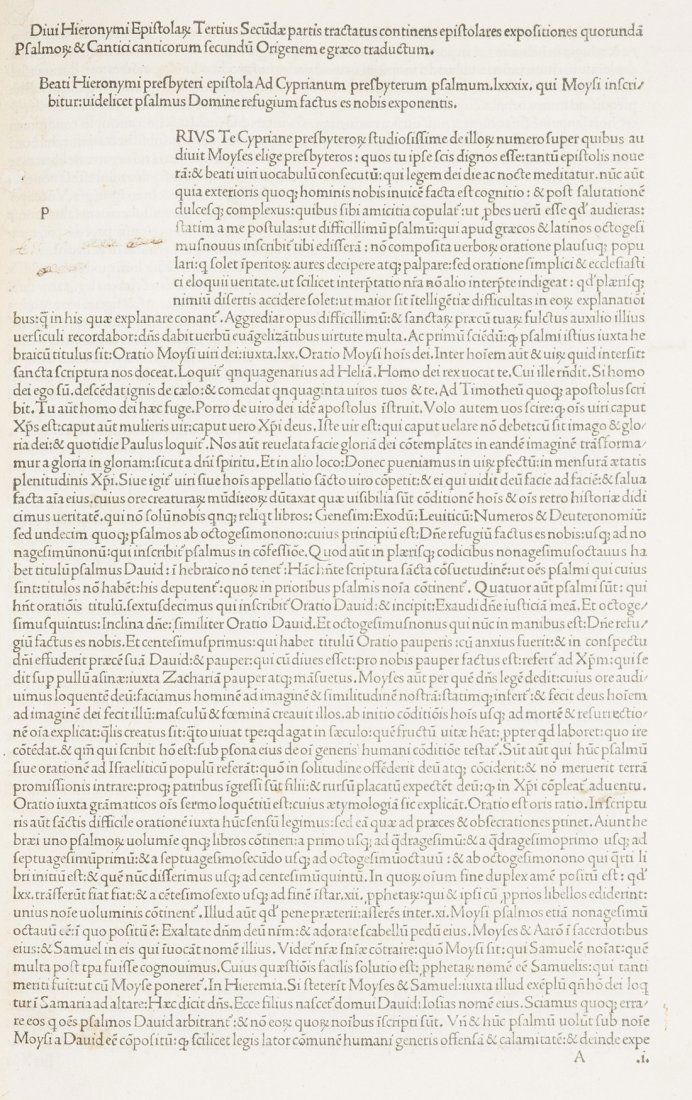 Diui Hieronymi Epistolaꝝ Tertius Secūdæ partis tractatus continens epistolares expositiones quorundā
Psalmoꝝ & Cantici canticorum secundū Origenem e græco traductum.
Beati Hieronymi presbyteri epistola Ad Cyprianum presbyterum psalmum.lxxxix. qui Moysi inscri/
bitur:uidelicet psalmus Domine refugium factus es nobis exponentis.
p
RIVS Te Cypriane presbyteroꝝ studiosissime de illoꝝ numero super quibus au
diuit Moyses elige presbyteros : quos tu ipse scis dignos esse:tantū epistolis noue
rā:& beati uiri uocabulū consecutū:qui legem dei die ac nocte meditatur.nūc aūt
quia exterioris quoqꝫ hominis nobis inuicē facta est cognitio : & post salutationē
dulcesqꝫ complexus:quibus sibi amicitia copulat᷑:ut ꝓbes uerū esse qđ audieras:
statim a me postulas:ut difficillimū psalmū:qui apud græcos & latinos octogesi
musnouus inscribit᷑ tibi edisserā : nō composita uerboꝝ oratione plausuqꝫ popu
lari:q̄ solet īperitoꝝ aures decipere atqꝫ palpare:sed oratione simplici & ecclesiasti
ci eloquii ueritate.ut scilicet interp̄tatio nr̄a nō alio interp̄te indigeat : qđ plærisqꝫ
nimiū disertis accidere solet:ut maior sit ītelligētiæ difficultas in eoꝝ explanatiōi
bus:q̄ in his quæ explanare conant᷑. Aggrediar opus difficillimū:& sanctaꝝ præcū tuaꝝ fultus auxilio illius
uersiculi recordabor:dn̄s dabit uerbū euāgelizātibus uirtute multa. Ac primū sciēdū:ꝙ psalmi istius iuxta he
braicū titulus sit:Oratio Moysi uiri dei:iuxta.lxx.Oratio Moysi hoīs dei.Inter hoīem aūt & uiꝝ quid intersit:
sancta scriptura nos doceat. Loquit᷑ qnquagenarius ad Heliā. Homo dei rex uocat te.Cui ille rn̄dit.Si homo
dei ego sū.descēdat ignis de cælo:& comedat qnquaginta uiros tuos & te.Ad Timotheū quoqꝫ apostolus scri
bit.Tu aūt homo dei hæc fuge.Porro de uiro dei idē apostolus īstruit.Volo autem uos scire:ꝙ oīs uiri caput
Xp̄s est:caput aūt mulieris uir:caput uero Xp̄i deus.Iste uir est:qui caput uelare nō debet:cū sit imago & glo/
ria dei:& quotidie Paulus loquit᷑.Nos aūt reuelata facie gloriā dei cōtemplātes in eandē imaginē trāsforma/
mur a gloria in gloriam:sicut a dn̄i spiritu.Et in alio loco:Donec pueniamus in uiꝝ pfectū:in mensurā ætatis
plenitudinis Xp̄i.Siue igit᷑ uiri siue hoīs appellatio sācto uiro cōpetit:& ei qui uidit deū facie ad faciē:& salua
facta aīa eius.cuius ore creaturaꝝ mūdi:eoꝝ dūtaxat quæ uisibilia sūt cōditionē hoīs & oīs retro historiæ didi
cimus ueritatē.qui nō solū nobis qnqꝫ reliqt libros: Genesim:Exodū:Leuiticū:Numeros & Deuteronomiū:
sed undecim quoqꝫ psalmos ab octogesimonono:cuius principiū est:Dn̄e refugiū factus es nobis:usqꝫ ad no
nagesimūnonū:qui inscribit᷑ psalmus in cōfessiōe.Quod aūt in plærisqꝫ codicibus nonagesimusoctauus ha
bet titulū psalmus Dauid : ī hebraico nō tenet᷑:Hāc hn̄te scriptura sācta cōsuetudinē:ut oēs psalmi qui cuius
sint:titulos nō habēt:his deputent᷑:quoꝝ in prioribus psalmis noīa cōtinent᷑. Quatuor aūt psalmi sūt : qui
hn̄t oratiōis titulū.sextusdecimus qui inscribit᷑ Oratio Dauid:& incipit:Exaudi dn̄e iusticiā meā.Et octoge/
simusquintus:Inclina dn̄e: similiter Oratio Dauid.Et octogesimusnonus qui nūc in manibus est:Dn̄e refu/
giū factus es nobis.Et centesimusprimus:qui habet titulū Oratio pauperis :cū anxius fuerit:& in conspectu
dn̄i effuderit præcē suā Dauid:& pauper:qui cū diues esset:pro nobis pauper factus est:refert᷑ ad Xp̄m:qui se
dit sup pullū asinæ:iuxta Zachariā pauper atqꝫ māsuetus. Moyses aūt per quē dn̄s legē dedit:cuius ore audi/
uimus loquentē deū:faciamus hominē ad imaginē & similitudinē nostrā:statimqꝫ infert᷑:& fecit deus hoīem
ad imaginē dei fecit illū:masculū & fœminā creauit illos.ab initio cōditiōis hoīs usqꝫ ad mortē & resurrectio/
nē oīa explicat:q̄lis creatus sit:q̄to uiuat tpe:qd agat in sæculo:quē fructū uitæ hēat:ꝓpter qd laboret:quo ire
cōtēdat.& qm̄ qui scribit hō est:sub psona eius de oī generis humani cōditiōe testat᷑.Sūt aūt qui hūc psalmū
siue orationē ad Israeliticū populū referāt:quō in solitudine offēderit deū atqꝫ cōciderit:& nō meruerit terrā
promissionis intrare:proqꝫ patribus īgressi sūt filii:& rursū placatū expectēt deū:ꝙ in Xp̄i cōpleat᷑ aduentu.
Oratio iuxta grāmaticos oīs sermo loquētiū est:cuius ætymologiā sic explicāt.Oratio est oris ratio.In scriptu
ris aūt sāctis difficile orationē iuxta hūc sensū legimus:sed eā quæ ad præces & obsecrationes ptinet.Aiunt he
bræi uno psalmoꝝ uolumīe qnqꝫ libros cōtineri:a primo usqꝫ ad q̄dragesimū:& a q̄dragesimoprimo usqꝫ ad
septuagesimūprimū:& a septuagesimosecūdo usqꝫ ad octogesimūoctauū : & ab octogesimonono qui q̄rti li
bri initiū est:& quē nūc disserimus usqꝫ ad centesimūquintū.In quoꝝ oīum fine duplex amē positū est : qđ
lxx.trāstulerūt fiat fiat:& a cētesimosexto usqꝫ ad finē īstar.xii.ꝓphetaꝝ:qui & ipsi cū ꝓprios libellos ediderint:
unius noīe uoluminis cōtinent᷑.Illud aūt qđ pene præterii:asserēs inter.xi.Moysi psalmos etiā nonagesimū
octauū eē:ī quo positū ē: Exaltate dn̄m deū nr̄m:& adorate scabellū pedū eius.Moyses & Aarō ī sacerdotibus
eius:& Samuel in eis qui īuocāt nomē illius. Videt᷑ nr̄æ sn̄iæ cōtraire:quō Moysi sit:qui Samuelē noīat:quē
multa post tpa fuisse cognouimus.Cuius quæstiōis facilis solutio est:ꝓphetaꝝ nomē eē Samuelis:qui tanti
meriti fuit:ut cū Moyse poneret᷑.In Hieremia.Si steterīt Moyses & Samuel:iuxta illud exēplū qn̄ hō dei loq
tur ī Samaria ad altare:Hæc dicit dn̄s.Ecce filius nascet᷑ domui Dauid:Iosias nomē eius.Sciamus quoqꝫ erra/
re eos q oēs psalmos Dauid arbitrant᷑:& nō eoꝝ quoꝝ noībus īscripti sūt. Vn̄ & hūc psalmū uolūt sub noīe
Moysi a Dauid eē cōpositū:ꝙ scilicet legis lator cōmunē humani generis offensā & calamitatē:& deinde expe
A .i.